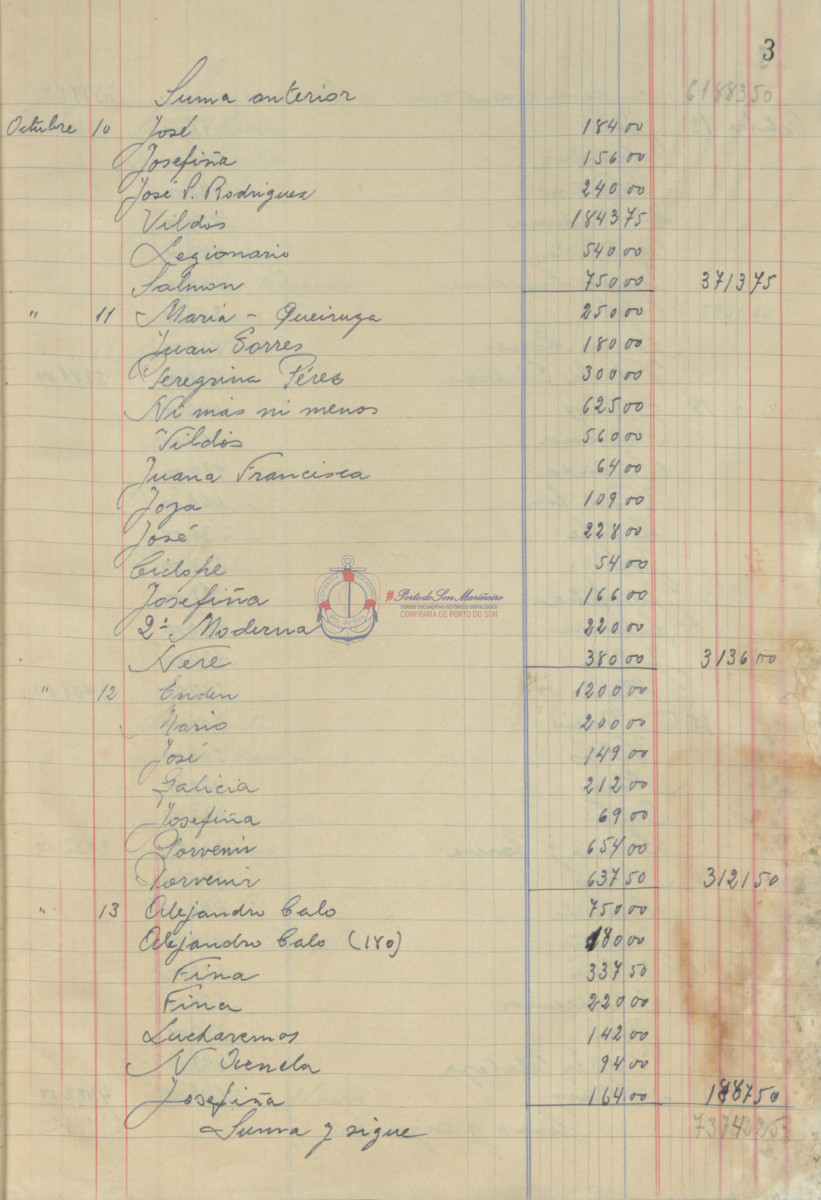 3
Suma anterior 6188350
Octubre 10 José 184 00
Josefiña 156 00
José P. Rodriguez 240 00
Vildós 1843 75
Legionario 540 00
Salmon 750 00 3713 75
" 11 Maria - Queiruga 250 00
Juan Torres 180 00
Peregrina Pérez 300 00
Ni más ni menos 625 00
Vildós 560 00
Juana Francisca 64 00
Joya 109 00
José 228 00
Ciclope 54 00
Josefiña 166 00
2ª Moderna 220 00
Nere 380 00 3136 00
" 12 Enden 1200 00
Mario 200 00
José 149 00
Galicia 212 00
Josefiña 69 00
Porvenir 654 00
Porvenir 637 50 3121 50
" 13 Alejandro Calo 750 00
Alejandro Calo (180) 180 00
Fina 337 50
Fina 220 00
Lucharemos 142 00
N 94 00
Josefiña 164 00 1887 50
Suma y sigue 7374225
#Porto do Son Mariñeiro
FONDOS DOCUMENTAIS HISTÓRICOS DIXITALIZADOS
CONFRARÍA DE PORTO DO SON